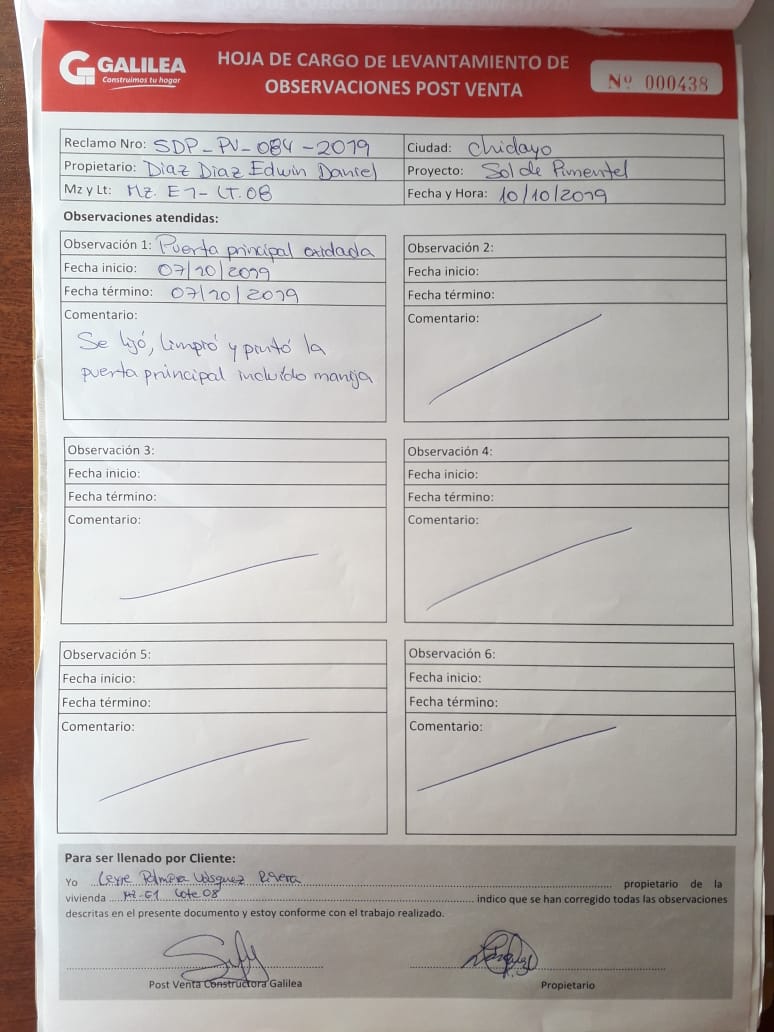 GALILEA
Construimos tu hogar
HOJA DE CARGO DE LEVANTAMIENTO DE
OBSERVACIONES POST VENTA
Nº 000438
Reclamo Nro: SDP_PV_084-2019
Ciudad: Chiclayo
Propietario: Diaz Diaz Edwin Daniel
Proyecto: Sol de Pimentel
Mz y Lt: Mz. E1- LT. 08
Fecha y Hora: 10/10/2019
Observaciones atendidas:
Observación 1: Puerta principal oxidada
Fecha inicio: 07/10/2019
Fecha término: 07/10/2019
Comentario:
Se lijó, limpió y pintó la
puerta principal incluído manija
Observación 2:
Fecha inicio:
Fecha término:
Comentario:
Observación 3:
Fecha inicio:
Fecha término:
Comentario:
Observación 4:
Fecha inicio:
Fecha término:
Comentario:
Observación 5:
Fecha inicio:
Fecha término:
Comentario:
Observación 6:
Fecha inicio:
Fecha término:
Comentario:
Para ser llenado por Cliente:
Yo Vásquez Rivera propietario de la
vivienda Mz-E1 Lote 08 indico que se han corregido todas las observaciones
descritas en el presente documento y estoy conforme con el trabajo realizado.
Post Venta Constructora Galilea
Propietario